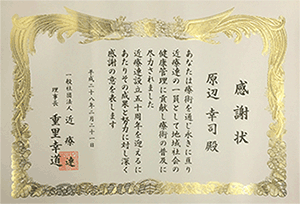 感謝状
原辺幸司殿
あなたは療術を通じ永きに亘り
近療連の一員として地域社会の
健康管理に貢献し療術の普及に
尽力されました
近療連設立五十周年を迎えるに
あたりその成果と努力に対し深く
感謝の意を表します
平成二十八年二月二十一日
一般社団法人 近療連
理事長 重里幸道